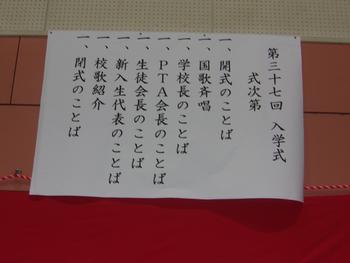 第三十七回 入学式
式次第
一、開式のことば
一、国歌斉唱
一、学校長のことば
一、PTA会長のことば
一、生徒会長のことば
一、新入生代表のことば
一、校歌紹介
一、閉式のことば